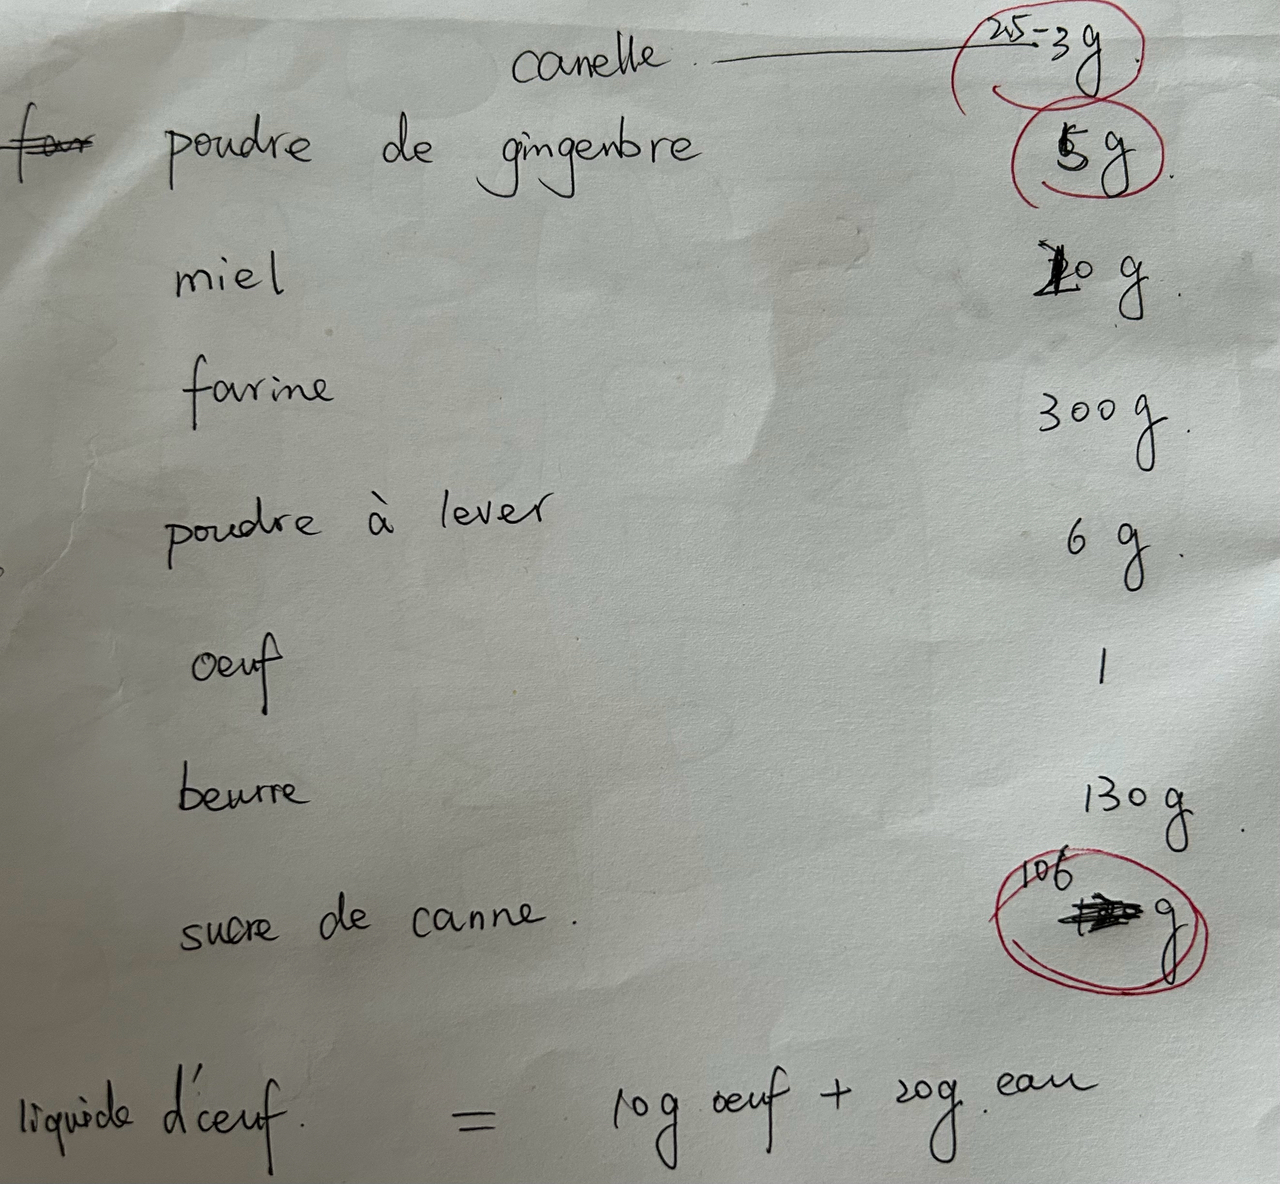 canelle 2.5-3g
poudre de gingenbre 5g
miel g
farine 300g
poudre à lever 6 g
oeuf 1
beurre 130g
sucre de canne. 106 g
liquide d'œuf. = 10g œuf + 20g eau